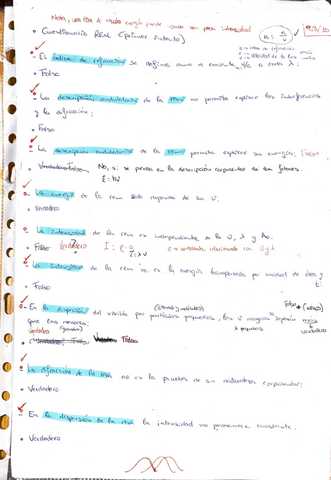 Nota, una REM de mucha energía puede existir con poca intensidad
• Cuestionario REM (primer intento)
n = c/v
9,3/10
n → índice de refracción
• El índice de refracción se define como el cociente v/c a cada λ:
• Falso
• La descripción ondulatoria de la REM no permite explicar las interferencias
y la difracción:
• Falso
• La descripción ondulatoria de la REM permite explicar su energía: Falso
• Verdadero Falso No, si se piensa en la descripción corpuscular de los fotones.
E = hν
• La energía de la REM solo depende de su ν.
• Verdadero
• La intensidad de la REM es independiente de la ν, λ y A₀.
• Falso Verdadero?
• La intensidad de la REM no es la energía transportada por unidad de área y
t:
• Falso
• En la dispersión del visible por partículas pequeñas, las ν mayores se dispersan
que las menores:
Falso
• La difracción de la REM no es la prueba de su naturaleza corpuscular:
• Verdadero
• En la dispersión de la REM la intensidad no permanece constante:
• Verdadero